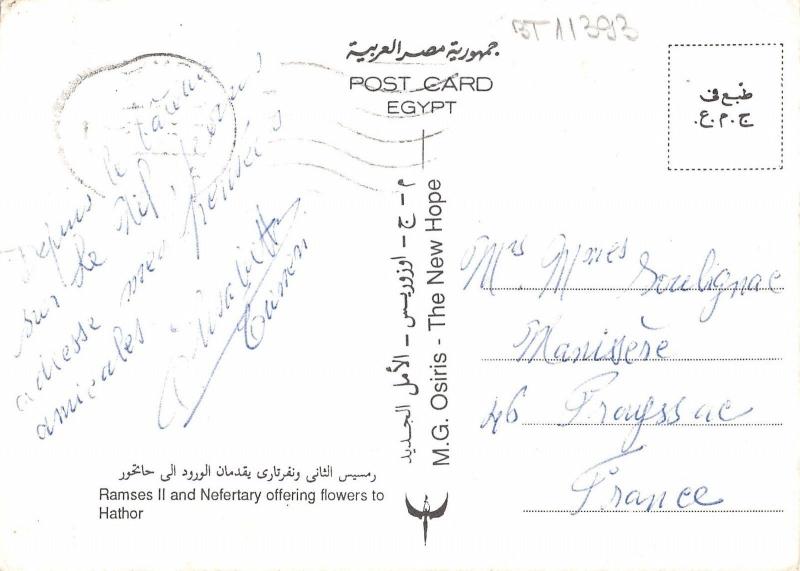 BT 11393
جمهورية مصر العربية
POST CARD
EGYPT
طبع في
ج.م.ع.
Depuis le
sur le Nil, je vous
adresse mes pensées
amicales
م - ج - اوزوريس - الأمل الجديد
M.G. Osiris - The New Hope
Mrs Mmes Soulignac
Manissère
46 Prayssac
France
رمسيس الثانى ونفرتارى يقدمان الورود الى حاتحور
Ramses II and Nefertary offering flowers to
Hathor